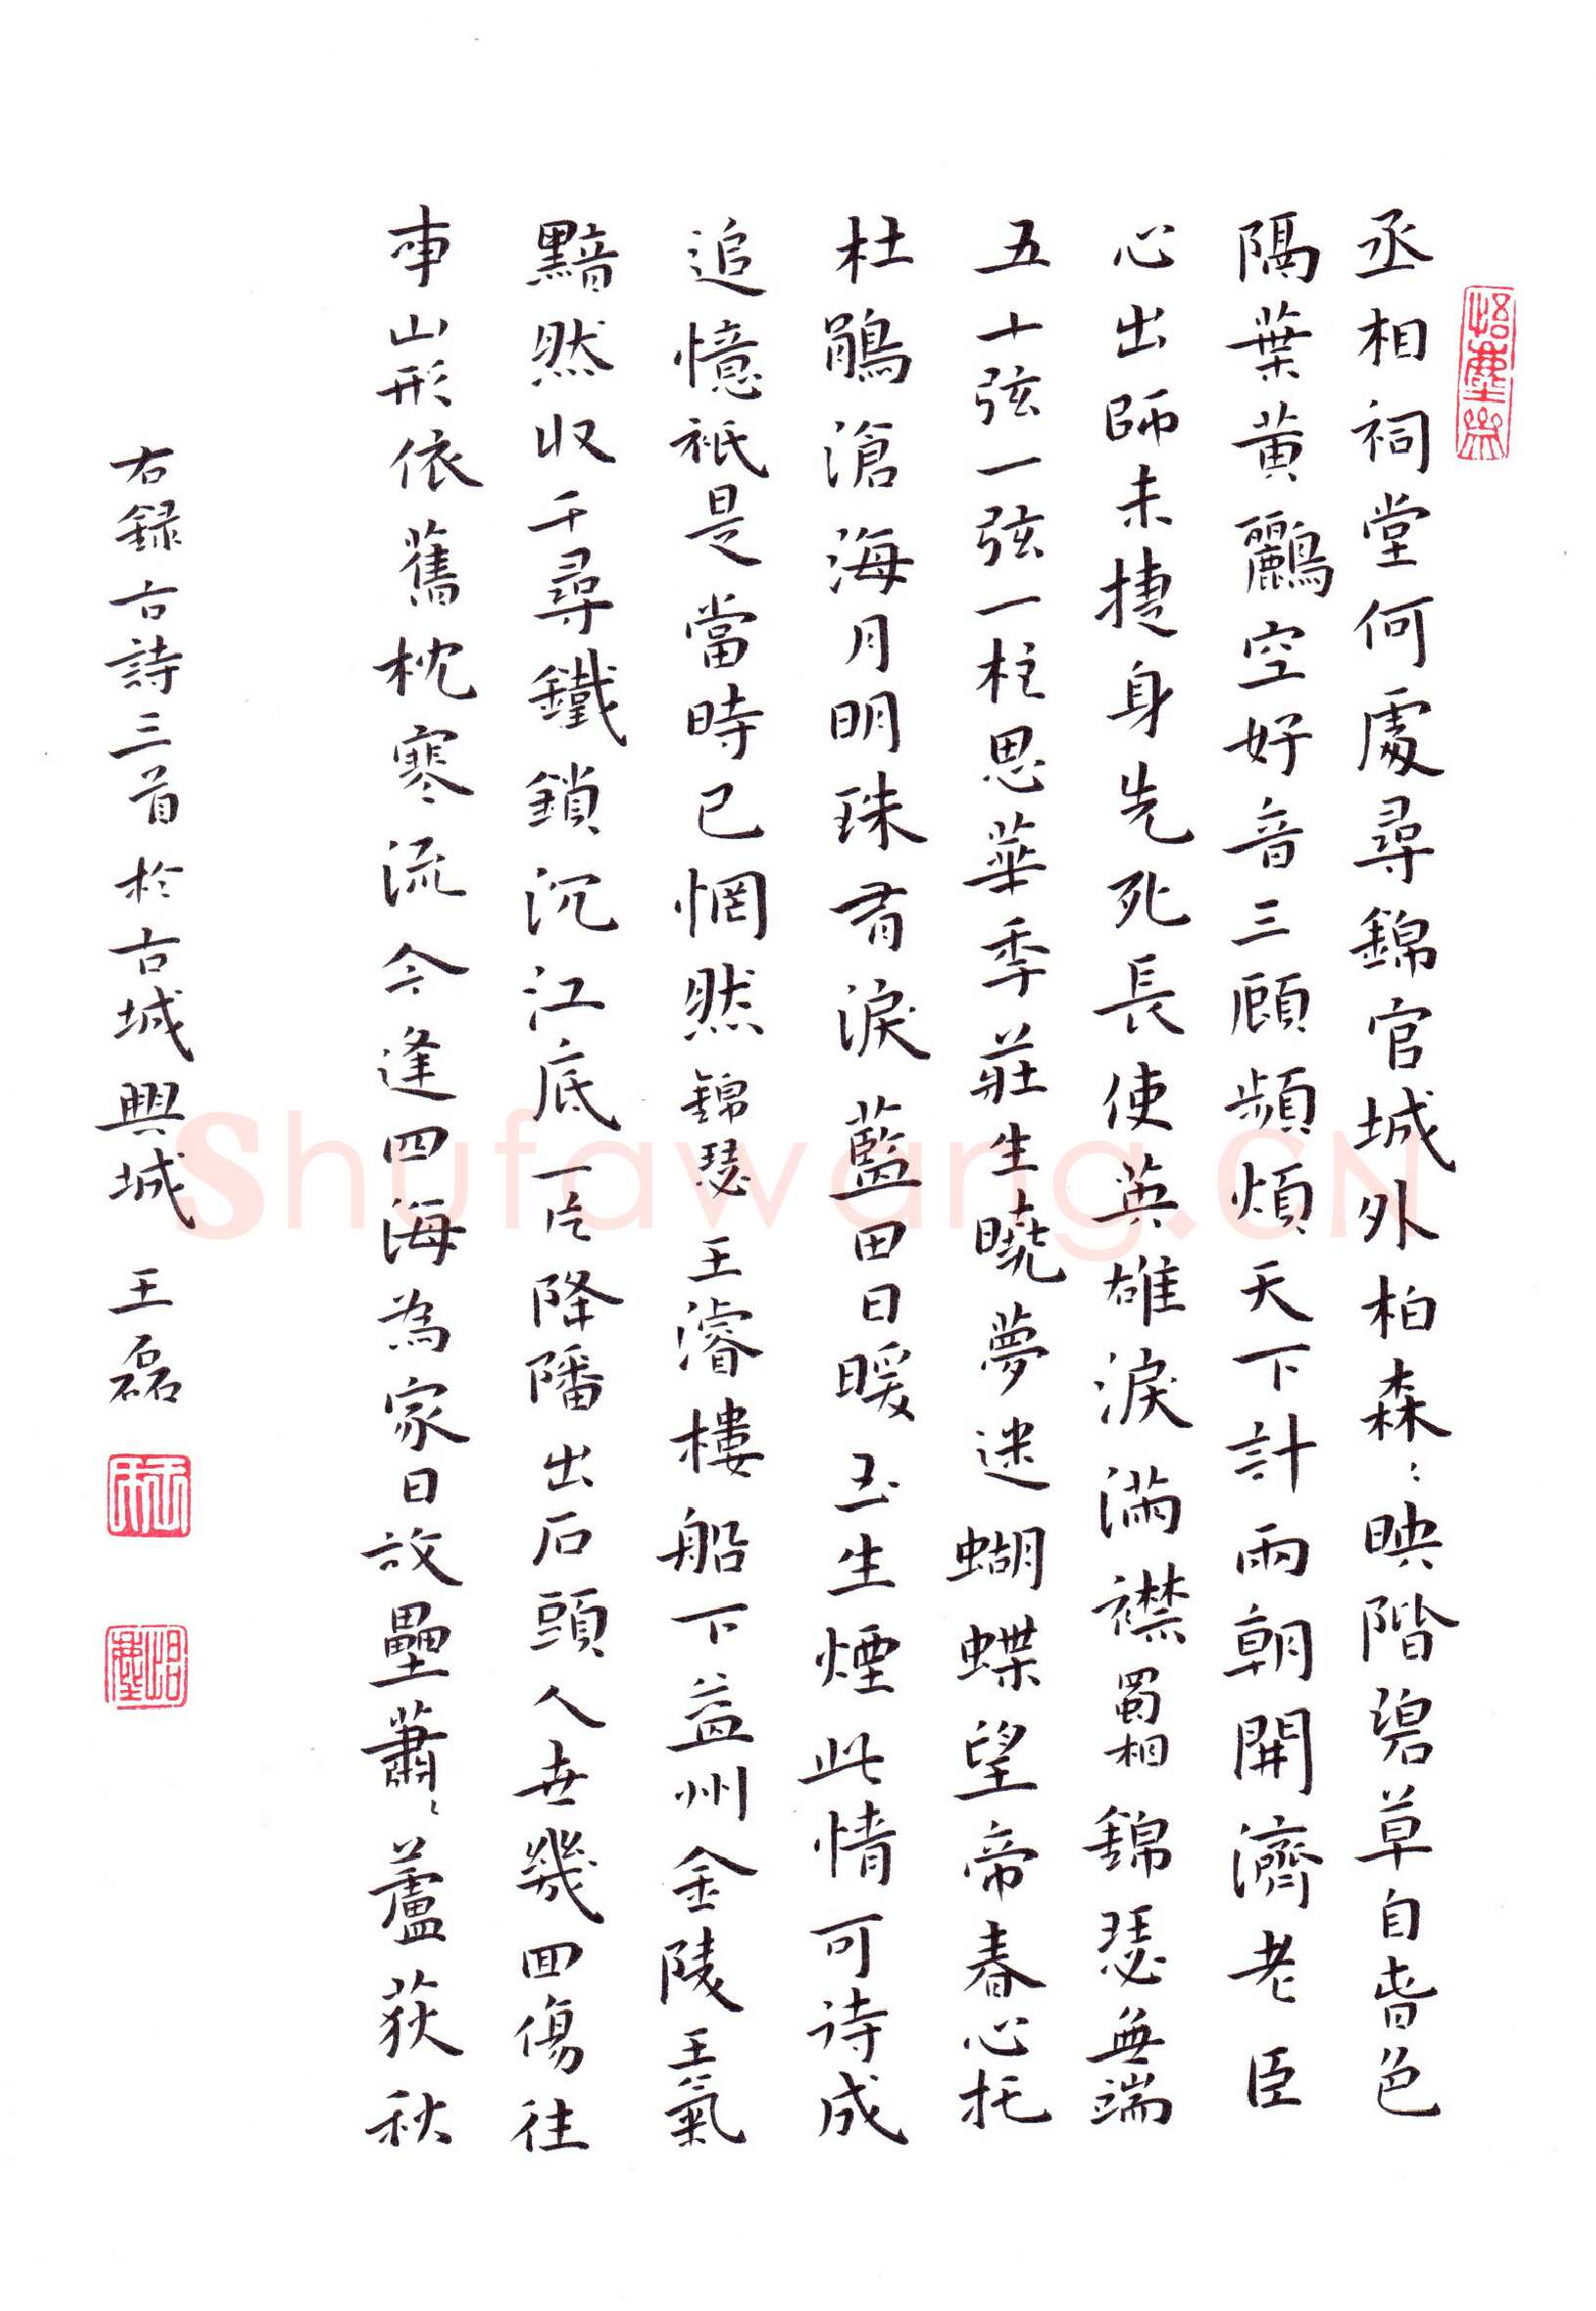 丞相祠堂何處尋錦官城外柏森〻映階碧草自春色
隔葉黃鸝空好音三顧頻煩天下計兩朝開濟老臣
心出師未捷身先死長使英雄淚滿襟蜀相錦瑟無端
五十弦一弦一柱思華年莊生曉夢迷蝴蝶望帝春心托
杜鵑滄海月明珠有淚藍田日暖玉生煙此情可待成
追憶祇是當時已惘然錦瑟王濬樓船下益州金陵王氣
黯然收千尋鐵鎖沉江底一片降旛出石頭人世幾回傷往
事山形依舊枕寒流今逢四海為家日故壘蕭〻蘆荻秋
右錄古詩三首於古城興城 王磊
Shufawang.CN